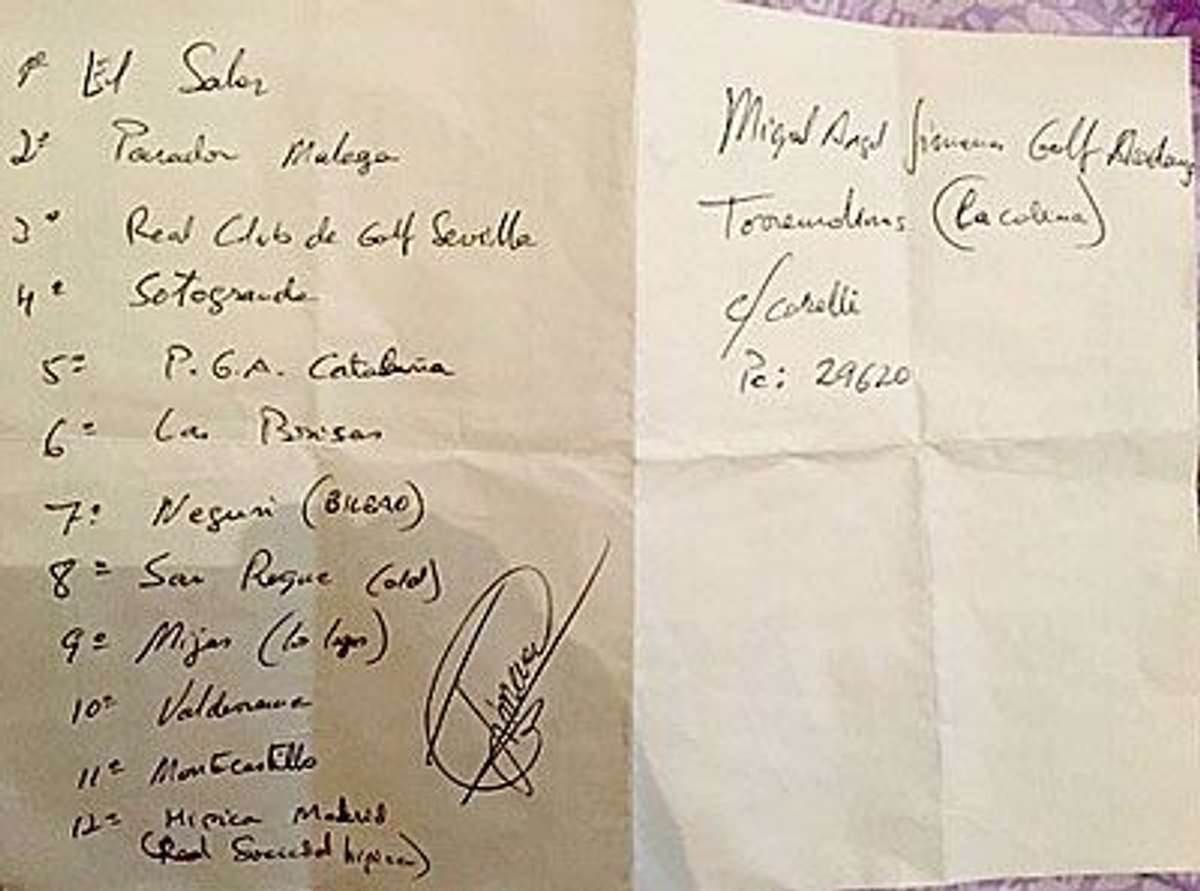 1º El Saler
2º Parador Malaga
3º Real Club de Golf Sevilla
4º Sotogrande
5º P.G.A. Cataluña
6º Las Brisas
7º Neguri (BILBAO)
8º San Roque (old)
9º Mijas (los lagos)
10º Valderrama
11º Montecastillo
12º Hipica Madrid
(Real Sociedad hipica)
Jimenez
Miguel Angel Jimenez Golf Academy
Torremolinos (La colina)
c/ Carelli
Pc: 29620